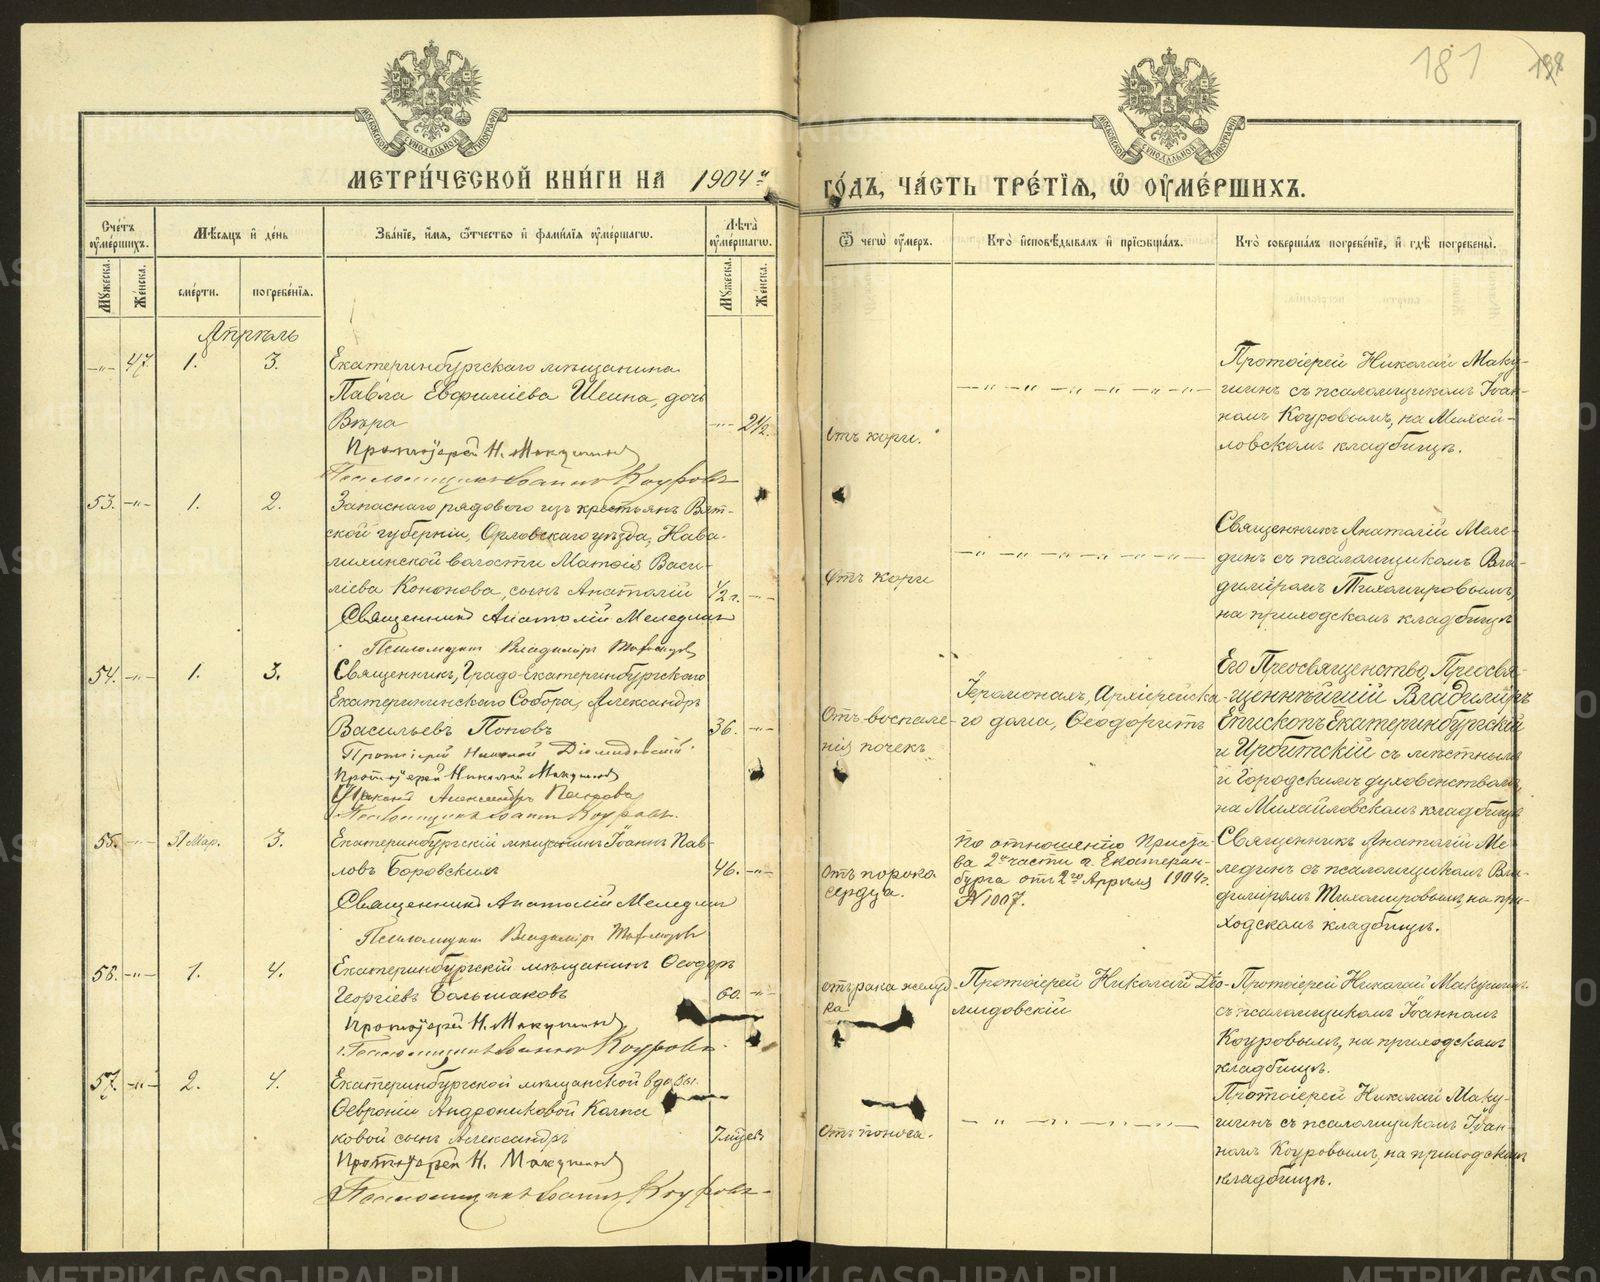 181
198
МОСКОВСКОЙ СѴНОДАЛЬНОЙ ТИПОГРАФІИ
МОСКОВСКОЙ СѴНОДАЛЬНОЙ ТИПОГРАФІИ
МЕТРИ́ЧЕСКОЙ КНИ́ГИ НА 1904й
ГО́ДЪ, ЧА́СТЬ ТРЕ́ТІѦ, Ѿ ОУМЕ́РШИХЪ.
Сче́тъ оуме́ршихъ.
Мѣ́сяцъ и҆ де́нь
Зва́нїе, и҆́мя, ѻ҆́тчество и҆ фами́лїя оуме́ршагѡ.
Лѣ́та оуме́ршагѡ.
Ѿ чегѡ̀ оу́меръ.
Кто̀ и҆сповѣ́дывалъ и҆ прїѡбща́лъ.
Кто̀ соверша́лъ погребе́нїе, и҆ гдѣ̀ погребены̀.
Му́жеска.
Же́нска.
сме́рти.
погребе́нїя.
Му́жеска.
Же́нска.
Апрѣль
-"- 47. 1. 3.
Екатеринбургскаго мѣщанина
Павла Евфиміева Шеина, дочь
Вѣра
-"- 2½.
Протоіерей Н. Макушинъ
Псаломщикъ Іоаннъ Коуровъ
Отъ кори.
-"-"-"-"-"-"-
Протоіерей Николай Маку-
шинъ съ псаломщикомъ Іоан-
номъ Коуровымъ, на Михай-
ловскомъ кладбищѣ.
53. -"- 1. 2.
Запаснаго рядового изъ крестьянъ Вят-
ской губерніи, Орловскаго уѣзда, Нава-
лихинской волости Матѳія Васи-
ліева Кононова, сынъ Анатолій
½ г. -"-
Священникъ Анатолій Меледин
Псаломщикъ Владиміръ Тихомировъ
Отъ кори
-"-"-"-"-"-"-
Священникъ Анатолій Меле-
динъ съ псаломщикомъ Вла-
диміромъ Тихомировымъ,
на приходскомъ кладбищѣ
54. -"- 1. 3.
Священникъ, Градо-Екатеринбургскаго
Екатерининскаго Собора, Александръ
Васильевъ Поповъ
36. -"-
Протоіерей Николай Діомидовскій
Протоіерей Николай Макушинъ
Діаконъ Александръ
Псаломщикъ Іоаннъ Коуровъ.
Отъ воспале-
нія почекъ
Іеромонахъ, Архіерейска-
го дома, Ѳеодоритъ
Его Преосвященство, Преосвя-
щеннѣйшій Владиміръ
Епископъ Екатеринбургскій
и Ирбитскій съ мѣстнымъ
и Городскимъ духовенствомъ,
на Михайловскомъ кладбищѣ
55. -"- 31 Мар. 3.
Екатеринбургскій мѣщанинъ Іоаннъ Пав-
ловъ Боровскихъ
46. -"-
Священникъ Анатолій Меледин
Псаломщикъ Владиміръ Тихомировъ
Отъ порока
сердца.
По отношенію Приста-
ва 2й части г. Екатерин-
бурга отъ 2го Апрѣля 1904 г.
№ 1007.
Священникъ Анатолій Ме-
лединъ съ псаломщикомъ Вла-
диміромъ Тихомировымъ, на при-
ходскомъ кладбищѣ.
56. -"- 1. 4.
Екатеринбургскій мѣщанинъ Ѳеодоръ
Георгіевъ Большаковъ
60. -"-
Протоіерей Н. Макушинъ
Псаломщикъ Іоаннъ Коуровъ.
Отъ рака желуд-
ка
Протоіерей Николай Діо-
мидовскій
Протоіерей Николай Макушинъ
съ псаломщикомъ Іоанномъ
Коуровымъ, на приходскомъ
кладбищѣ.
57. -"- 2. 4.
Екатеринбургской мѣщанской вдовы
Ѳевроніи Андрониковой Калпа
ковой сынъ Александръ
7 мѣсяц.
Протоіерей Н. Макушинъ
Псаломщикъ Іоаннъ Коуровъ.
Отъ поноса.
-"-"-"-"-
Протоіерей Николай Маку-
шинъ съ псаломщикомъ Іоан-
номъ Коуровымъ, на приходскомъ
кладбищѣ.
METRIKI.GASO-URAL.RU